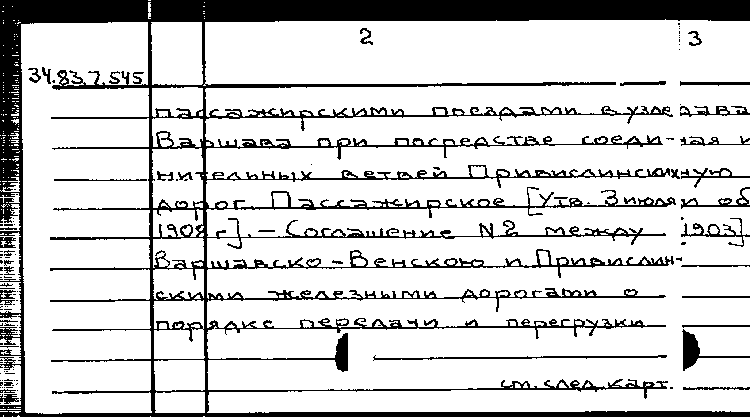 2 3
34.83.7.545
пассажирскими поездами в узле
Варшава при посредстве соеди-
нительных ветвей Привислинских
дорог. Пассажирское [Утв. 3 июля
1908 г]. – Соглашение N2 между 1903]
Варшавско-Венскою и Привислин-
скими железными дорогами о
порядке передачи и перегрузки
см. след. карт.